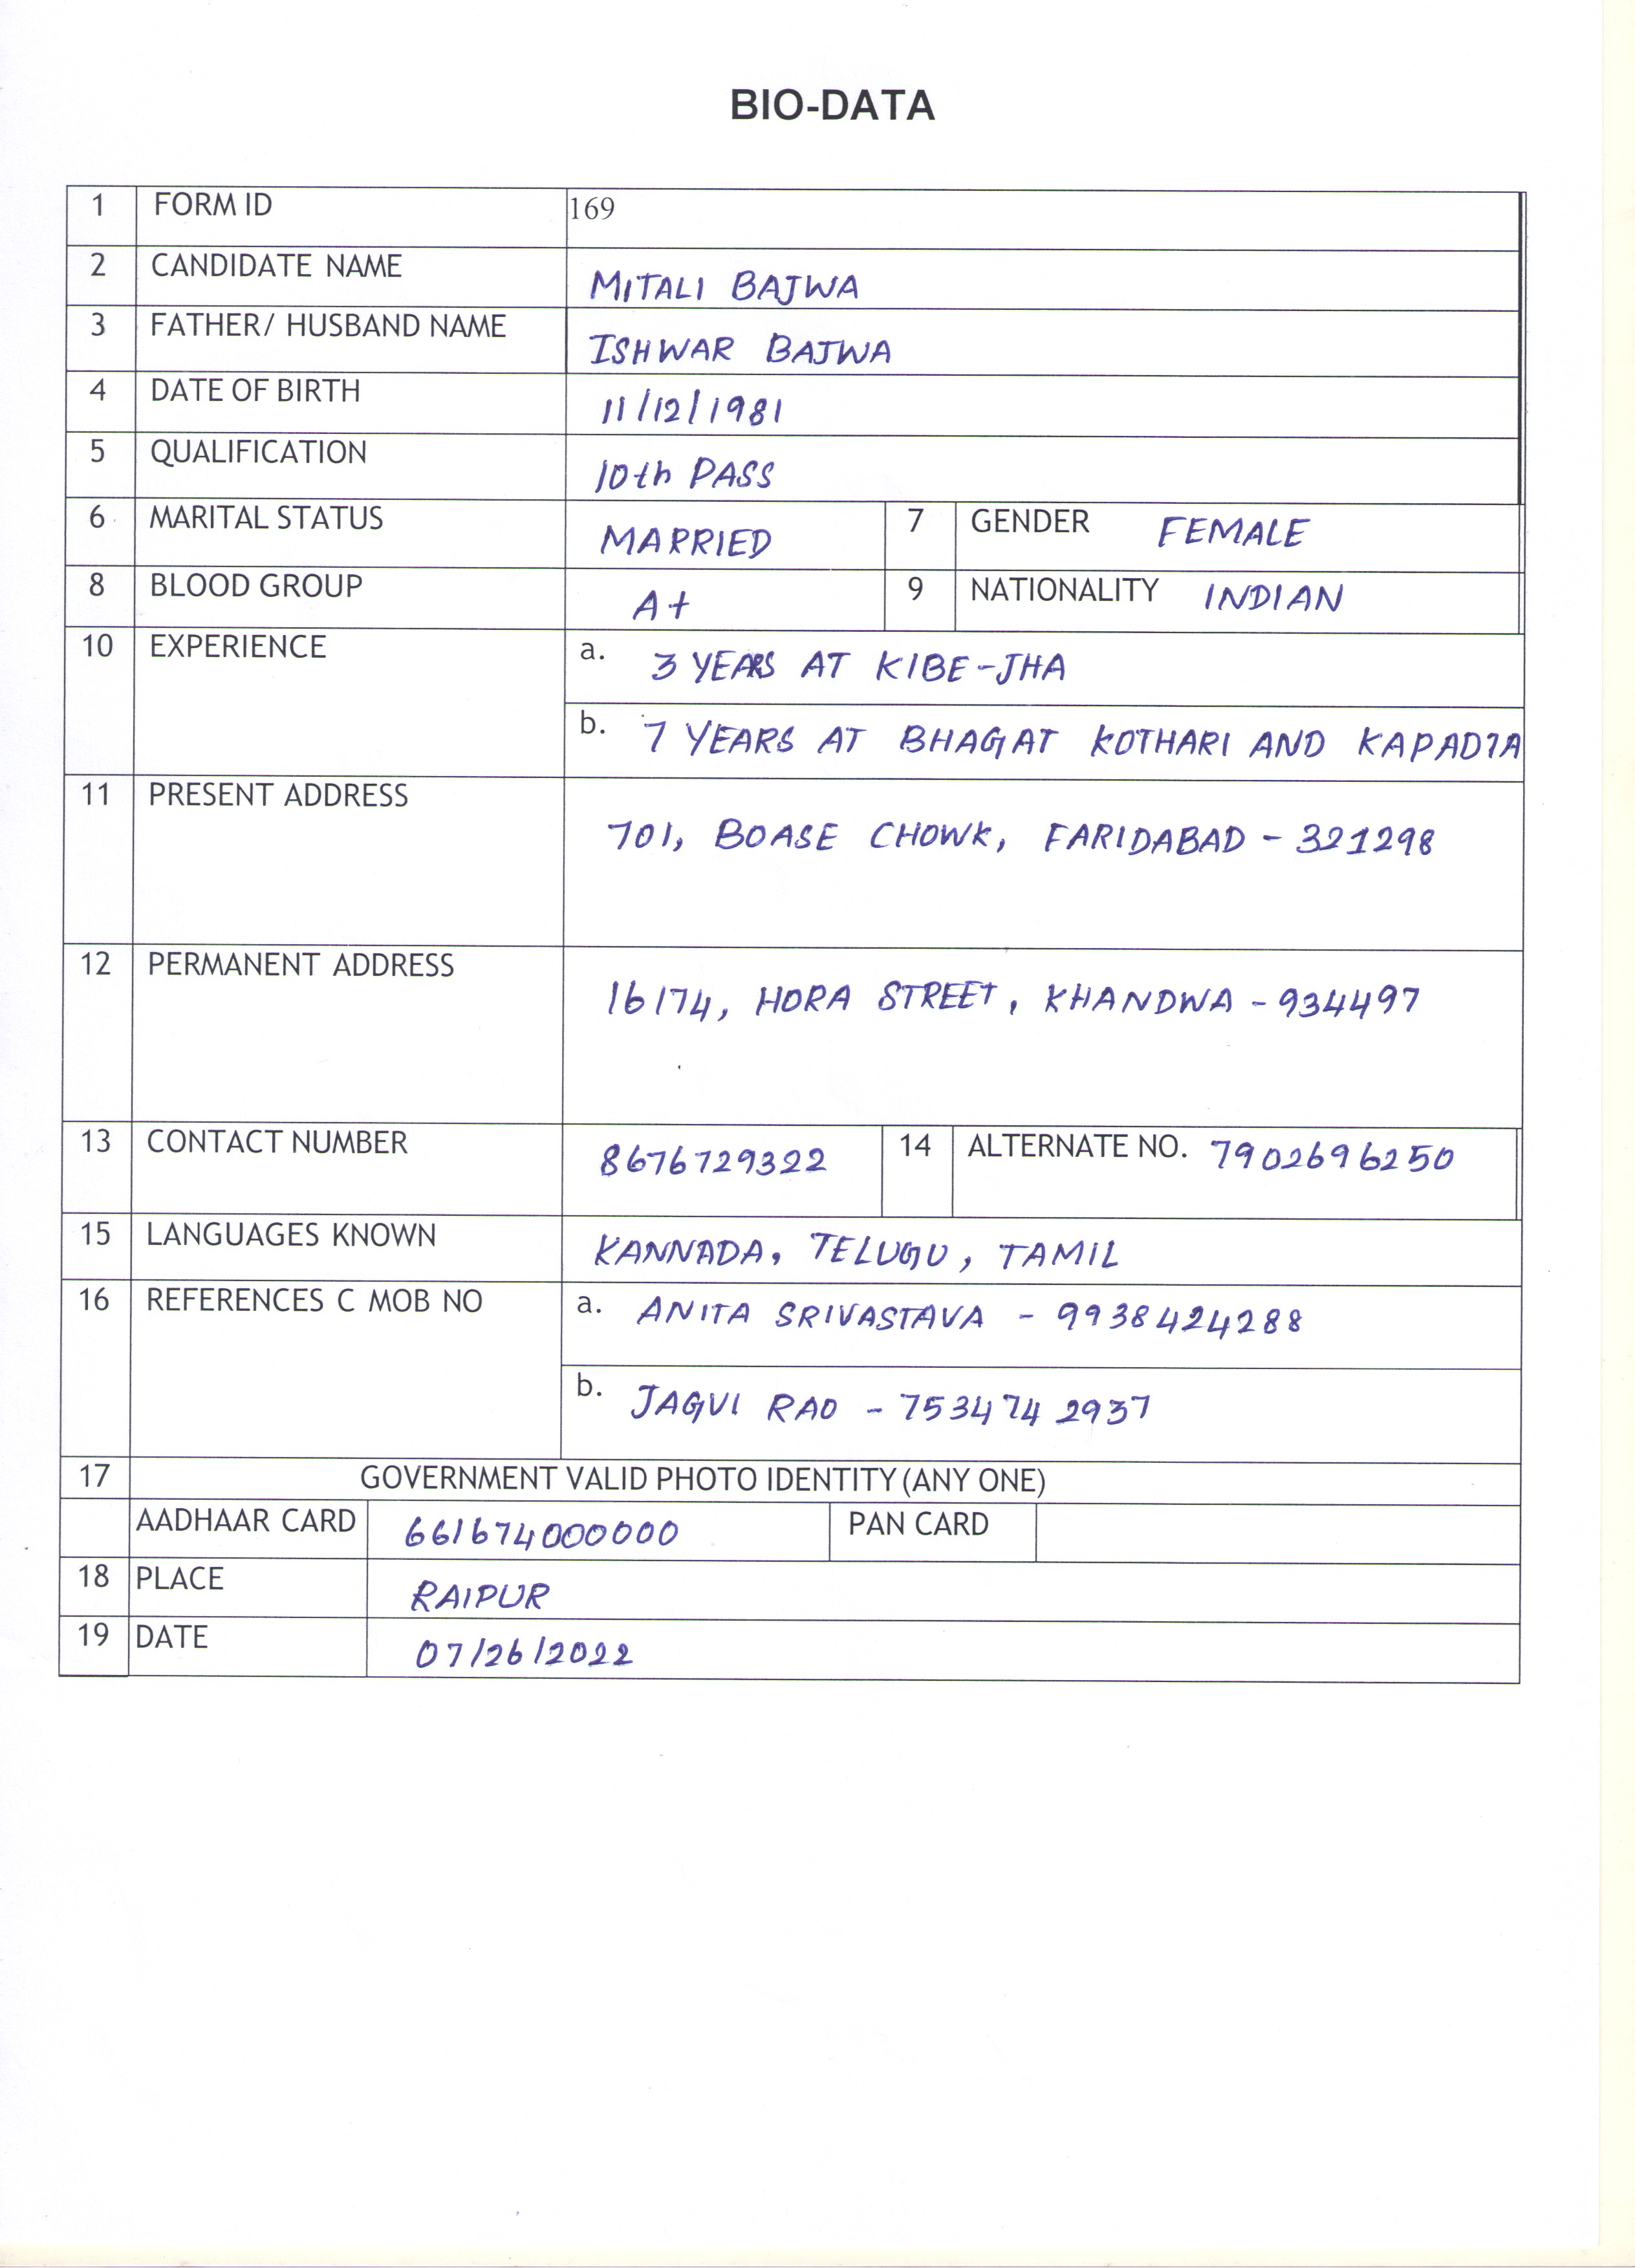 BIO-DATA
1 FORM ID 169
2 CANDIDATE NAME MITALI BAJWA
3 FATHER/ HUSBAND NAME ISHWAR BAJWA
4 DATE OF BIRTH 11/12/1981
5 QUALIFICATION 10th PASS
6 MARITAL STATUS MARRIED 7 GENDER FEMALE
8 BLOOD GROUP A+ 9 NATIONALITY INDIAN
10 EXPERIENCE a. 3 YEARS AT KIBE-JHA
b. 7 YEARS AT BHAGAT KOTHARI AND KAPADIA
11 PRESENT ADDRESS 701, BOASE CHOWK, FARIDABAD - 321298
12 PERMANENT ADDRESS 16174, HORA STREET, KHANDWA - 934497
13 CONTACT NUMBER 8676729322 14 ALTERNATE NO. 7902696250
15 LANGUAGES KNOWN KANNADA, TELUGU, TAMIL
16 REFERENCES C MOB NO a. ANITA SRIVASTAVA - 9938424288
b. JAGVI RAO - 7534742937
17 GOVERNMENT VALID PHOTO IDENTITY (ANY ONE)
AADHAAR CARD 661674000000 PAN CARD
18 PLACE RAIPUR
19 DATE 07/26/2022